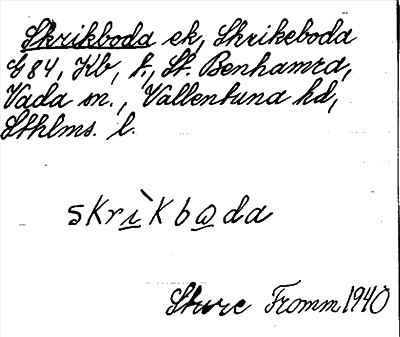 Skrikboda ek, Skrikeboda
G 84, Kb, t., St. Benhamra,
Vada sn., Vallentuna hd,
Sthlms. l.
skrìkboda
Sture Fromm 1940